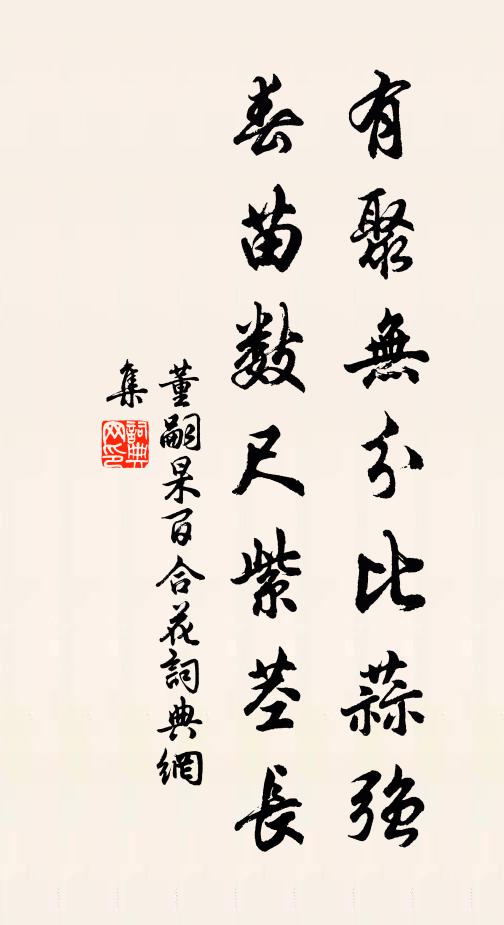 有聚無分比蒜強
春苗數尺紫莖長
董嗣杲百合花詞典網
集
詞典
网印